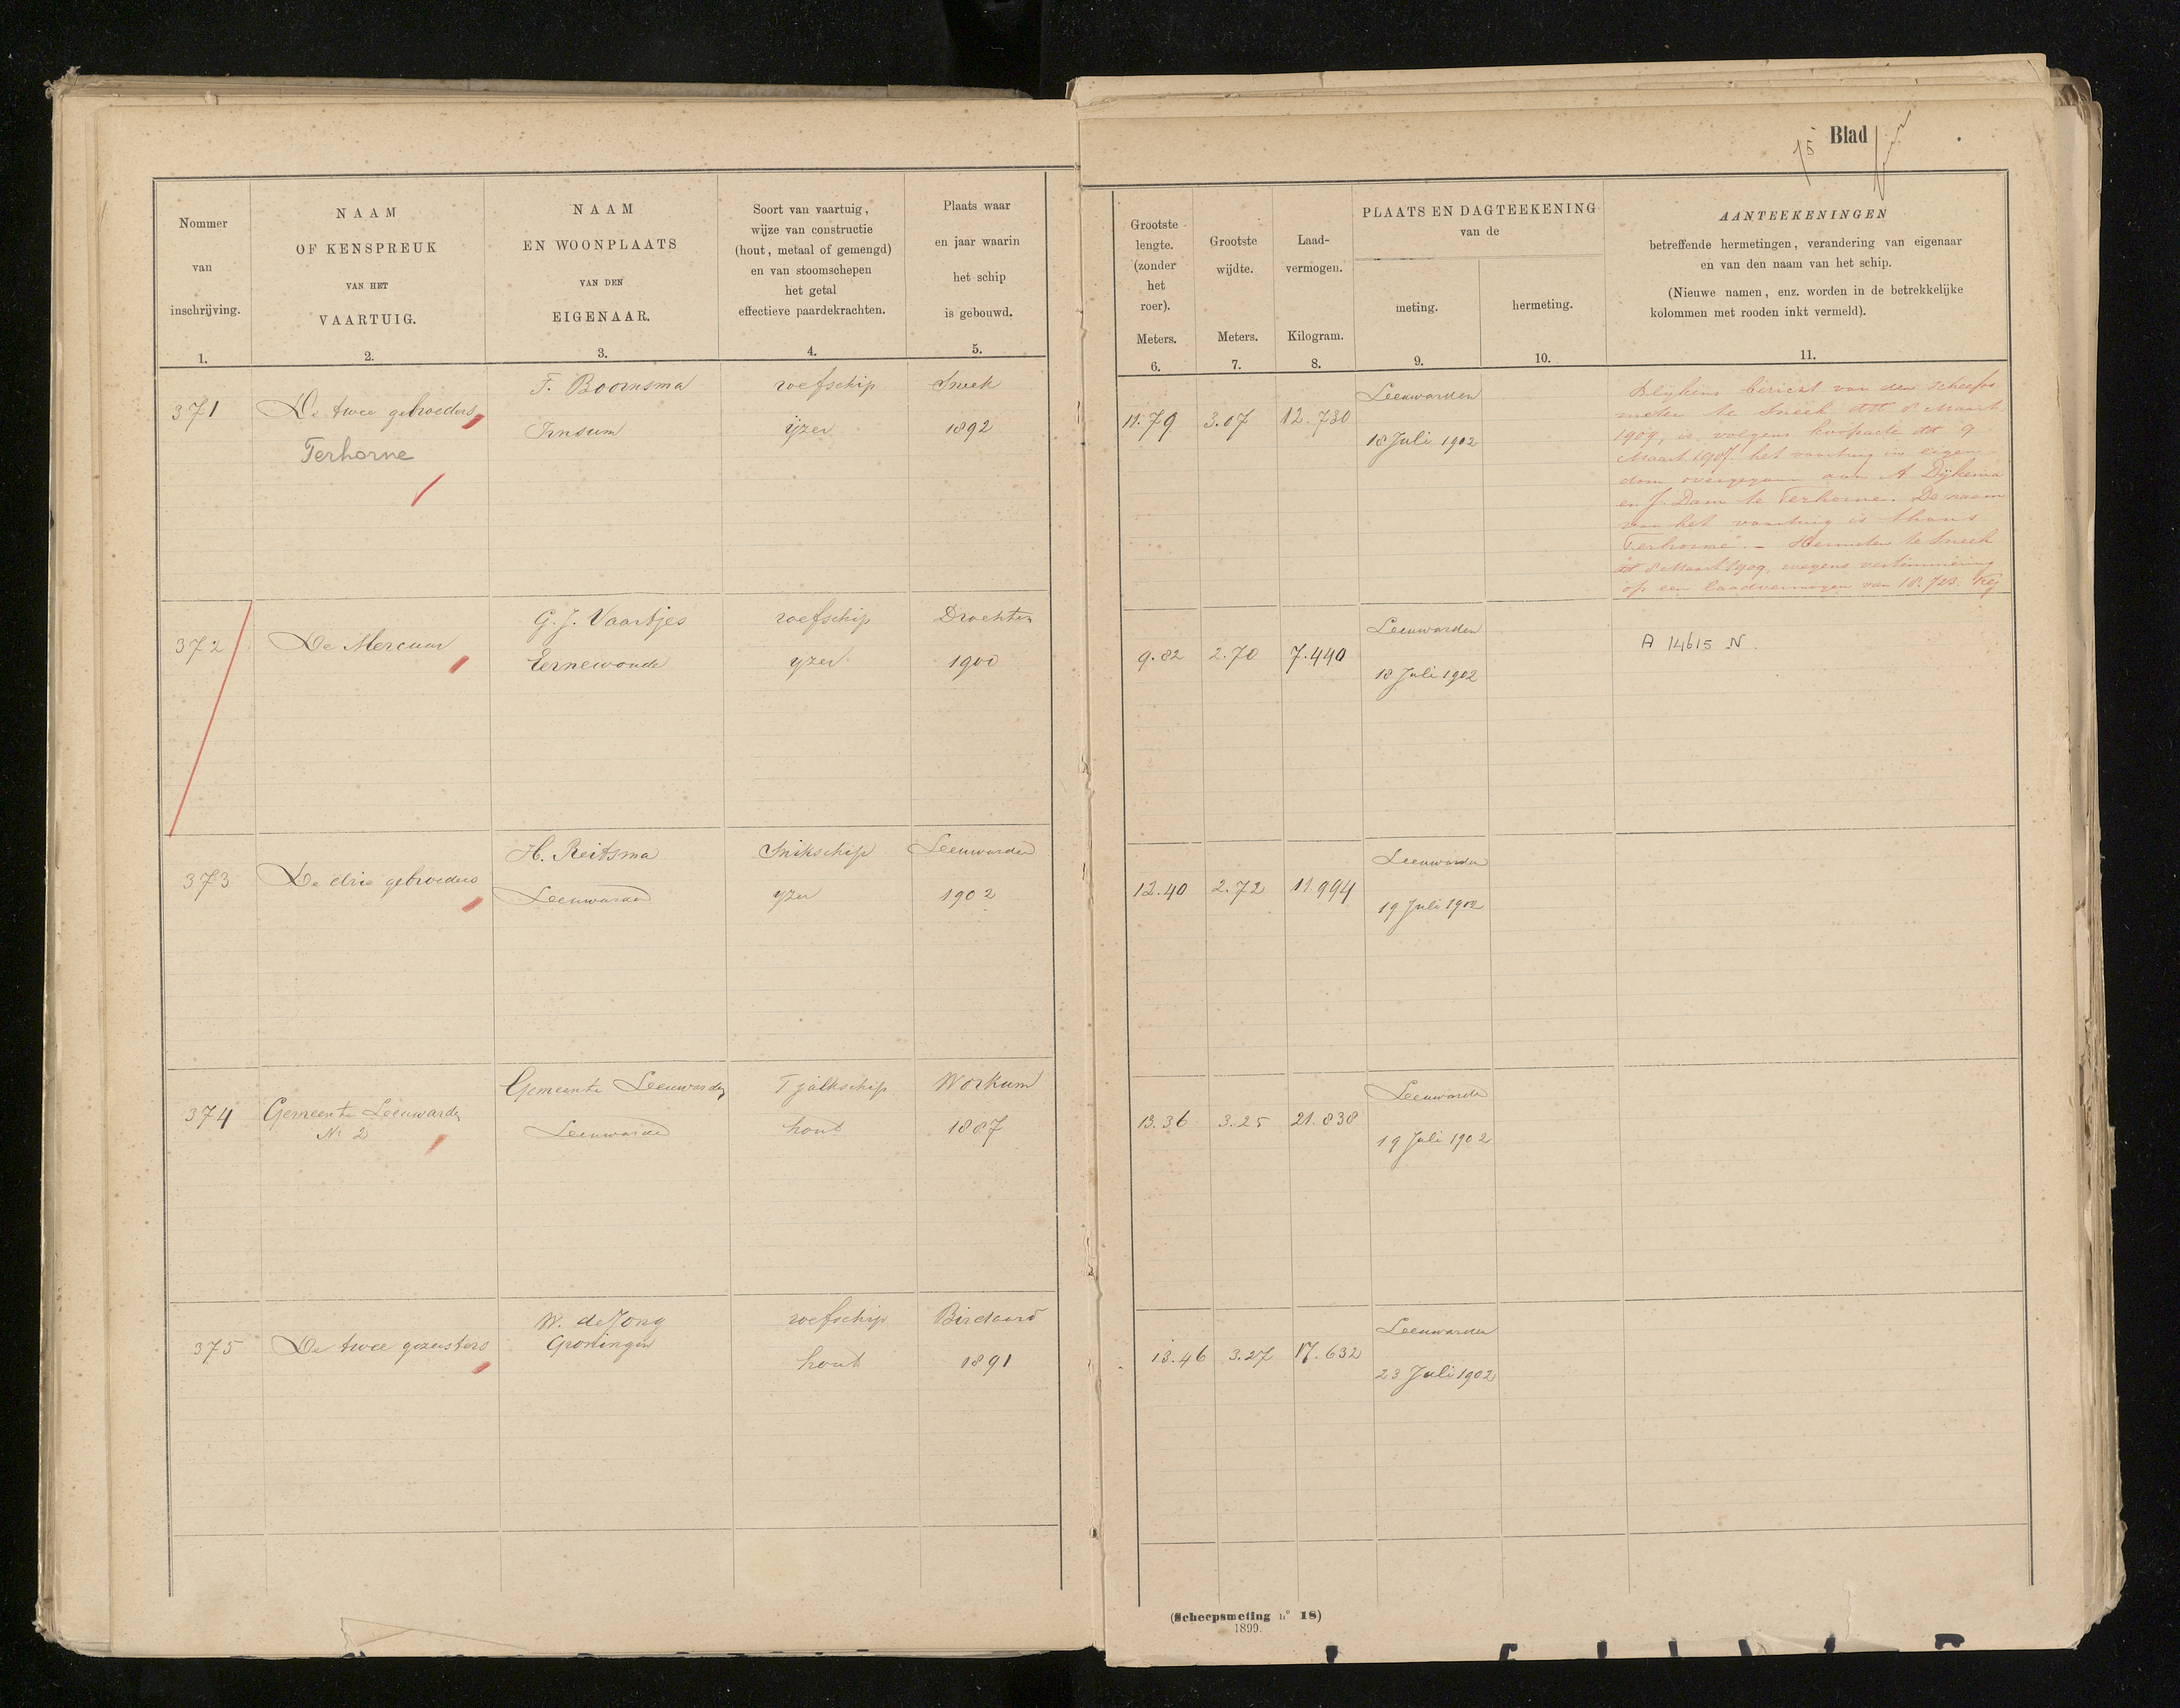 Blad
15
Nommer
van
inschrijving.
1.
NAAM
OF KENSPREUK
VAN HET
VAARTUIG.
2.
NAAM
EN WOONPLAATS
VAN DEN
EIGENAAR.
3.
Soort van vaartuig,
wijze van constructie
(hout, metaal of gemengd)
en van stoomschepen
het getal
effectieve paardekrachten.
4.
Plaats waar
en jaar waarin
het schip
is gebouwd.
5.
Grootste
lengte.
(zonder
het
roer).
Meters.
6.
Grootste
wijdte.
Meters.
7.
Laad-
vermogen.
Kilogram.
8.
PLAATS EN DAGTEEKENING
van de
meting.
9.
hermeting.
10.
AANTEEKENINGEN
betreffende hermetingen, verandering van eigenaar
en van den naam van het schip.
(Nieuwe namen, enz. worden in de betrekkelijke
kolommen met rooden inkt vermeld).
11.
371
De twee gebroeders
Terhorne
F. Boornsma
Irnsum
roefschip
ijzer
Sneek
1892
11.79
3.07
12.730
Leeuwarden
18 Juli 1902
Blijkens bericht van den scheeps
meter te Sneek dd 8 Maart
1909, is volgens koopacte dd 9
Maart 1907 het vaartuig in eigen-
dom overgegaan aan A Dijkema
en J. Dam te Terhorne. De naam
van het vaartuig is thans
"Terhorne". - Hermeten te Sneek
dd 8 Maart 1909, wegens vertimmering
op een laadvermogen van 18.723 Kg
372
De Mercuur
G. J. Vaartjes
Eernewoude
roefschip
yzer
Drachten
1900
9.82
2.70
7.440
Leeuwarden
18 Juli 1902
A 14615 N.
373
De drie gebroeders
H. Reitsma
Leeuwarden
Snikschip
yzer
Leeuwarden
1902
12.40
2.72
11.994
Leeuwarden
19 Juli 1902
374
Gemeente Leeuwarden
No 2
Gemeente Leeuwarden
Leeuwarden
Tjalkschip
hout
Workum
1887
13.36
3.25
21.838
Leeuwarden
19 Juli 1902
375
De twee gezusters
W. de Jong
Groningen
roefschip
hout
Birdaard
1891
13.46
3.27
17.632
Leeuwarden
23 Juli 1902
(Scheepsmeting n° 18)
1899.